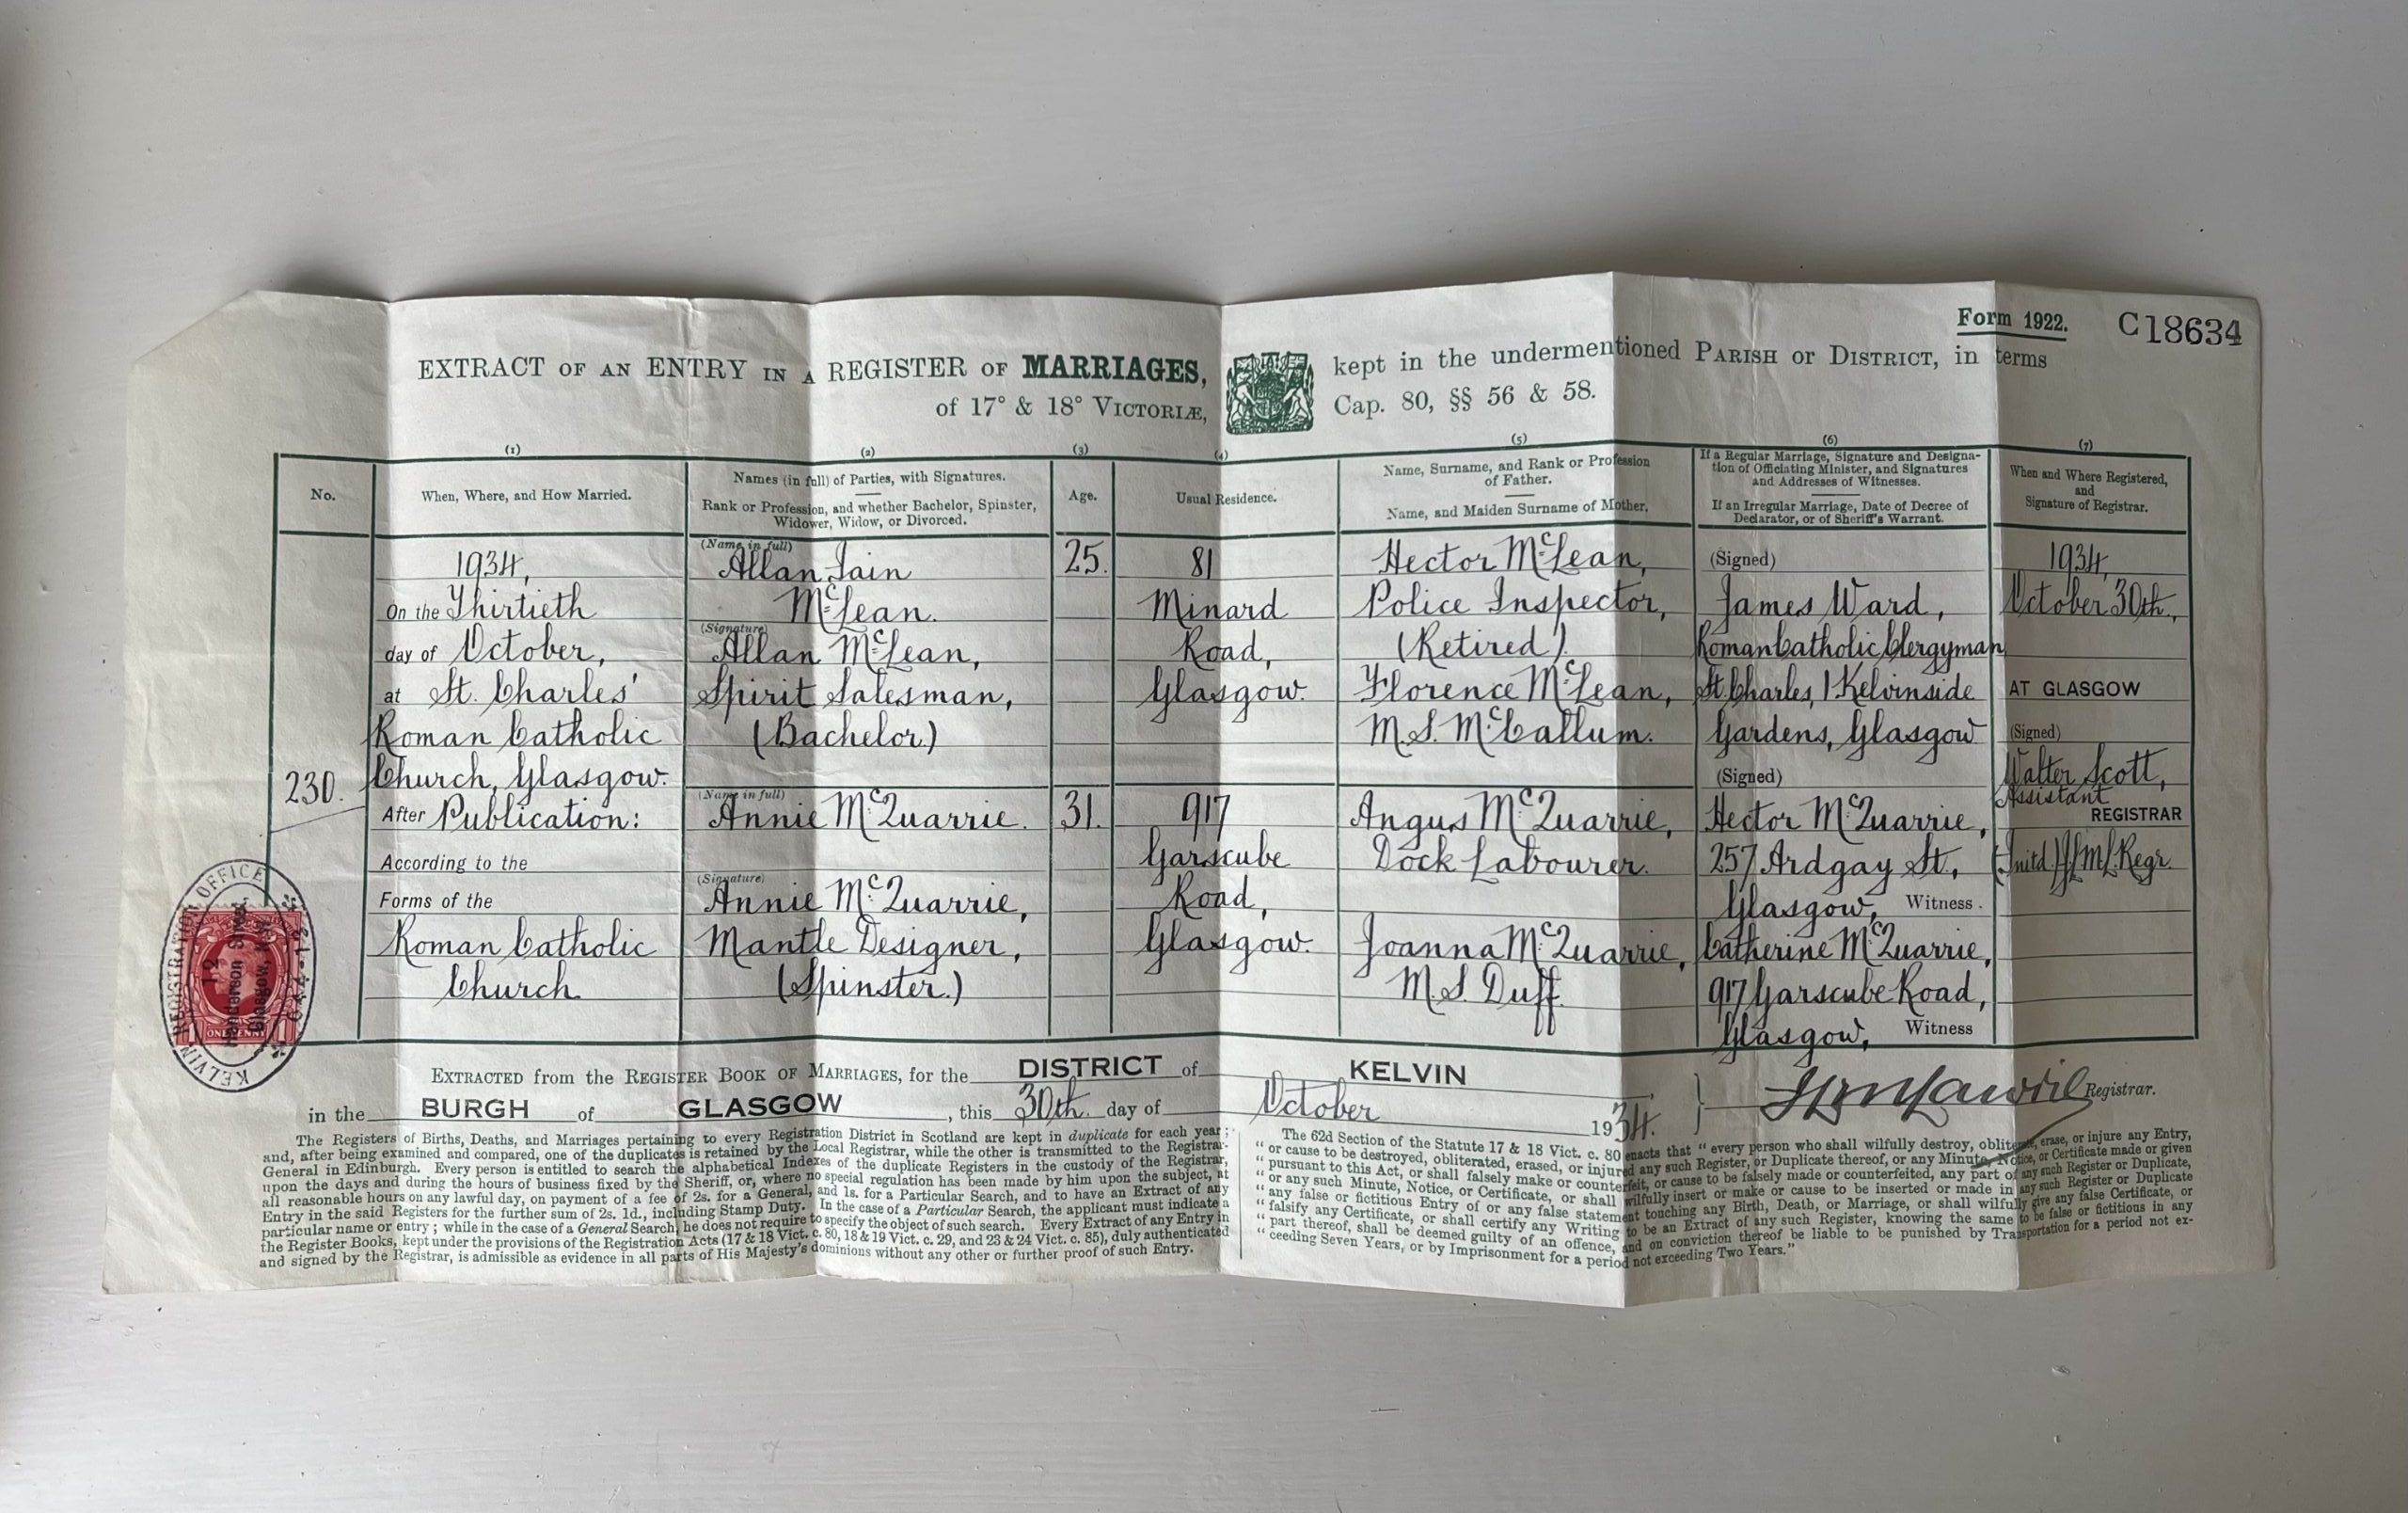 Form 1922.
C18634
EXTRACT OF AN ENTRY IN A REGISTER OF MARRIAGES, kept in the undermentioned PARISH OR DISTRICT, in terms
of 17° & 18° VICTORIÆ, Cap. 80, §§ 56 & 58.
(1) (2) (3) (4) (5) (6) (7)
No.
When, Where, and How Married.
Names (in full) of Parties, with Signatures.
Rank or Profession, and whether Bachelor, Spinster,
Widower, Widow, or Divorced.
Age.
Usual Residence.
Name, Surname, and Rank or Profession
of Father.
Name, and Maiden Surname of Mother.
If a Regular Marriage, Signature and Designa-
tion of Officiating Minister, and Signatures
and Addresses of Witnesses.
If an Irregular Marriage, Date of Decree of
Declarator, or of Sheriff's Warrant.
When and Where Registered,
and
Signature of Registrar.
230.
1934,
On the Thirtieth
day of October,
at St. Charles'
Roman Catholic
Church, Glasgow.
After Publication:
According to the
Forms of the
Roman Catholic
Church
(Name in full)
Allan Iain
McLean.
(Signature)
Allan McLean,
Spirit Salesman,
(Bachelor)
(Name in full)
Annie McQuarrie.
(Signature)
Annie McQuarrie,
Mantle Designer,
(Spinster.)
25.
31.
81
Minard
Road,
Glasgow.
917
Garscube
Road,
Glasgow.
Hector McLean,
Police Inspector,
(Retired).
Florence McLean,
M.S. McCallum.
Angus McQuarrie,
Dock Labourer.
Joanna McQuarrie,
M.S. Duff.
(Signed)
James Ward,
Roman Catholic Clergyman
St. Charles, 1 Kelvinside
Gardens, Glasgow
(Signed)
Hector McQuarrie,
257 Ardgay St.,
Glasgow, Witness.
Catherine McQuarrie,
917 Garscube Road,
Glasgow, Witness
1934,
October 30th.,
AT GLASGOW
(Signed)
Walter Scott,
Assistant
REGISTRAR
(Initd.) Regr.
KELVIN REGISTRATION OFFICE
Glasgow, N.W.
ONE PENNY
EXTRACTED from the REGISTER BOOK OF MARRIAGES, for the DISTRICT of KELVIN
in the BURGH of GLASGOW, this 30th. day of October 1934.
Registrar.
The Registers of Births, Deaths, and Marriages pertaining to every Registration District in Scotland are kept in duplicate for each year;
and, after being examined and compared, one of the duplicates is retained by the Local Registrar, while the other is transmitted to the Registrar-
General in Edinburgh. Every person is entitled to search the alphabetical Indexes of the duplicate Registers in the custody of the Registrar,
upon the days and during the hours of business fixed by the Sheriff, or, where no special regulation has been made by him upon the subject, at
all reasonable hours on any lawful day, on payment of a fee of 2s. for a General, and 1s. for a Particular Search, and to have an Extract of any
Entry in the said Registers for the further sum of 2s. 1d., including Stamp Duty. In the case of a Particular Search, the applicant must indicate a
particular name or entry; while in the case of a General Search, he does not require to specify the object of such search. Every Extract of any Entry in
the Register Books, kept under the provisions of the Registration Acts (17 & 18 Vict. c. 80, 18 & 19 Vict. c. 29, and 23 & 24 Vict. c. 85), duly authenticated
and signed by the Registrar, is admissible as evidence in all parts of His Majesty's dominions without any other or further proof of such Entry.
The 62d Section of the Statute 17 & 18 Vict. c. 80 enacts that "every person who shall wilfully destroy, obliterate, erase, or injure any Entry,
"or cause to be destroyed, obliterated, erased, or injured any such Register, or Duplicate thereof, or any Minute, Notice, or Certificate made or given
"pursuant to this Act, or shall falsely make or counterfeit, or cause to be falsely made or counterfeited, any part of any such Register or Duplicate,
"or any such Minute, Notice, or Certificate, or shall wilfully insert or make or cause to be inserted or made in any such Register or Duplicate
"any false or fictitious Entry of or any false statement touching any Birth, Death, or Marriage, or shall wilfully give any false Certificate, or
"falsify any Certificate, or shall certify any Writing to be an Extract of any such Register, knowing the same to be false or fictitious in any
"part thereof, shall be deemed guilty of an offence, and on conviction thereof be liable to be punished by Transportation for a period not ex-
"ceeding Seven Years, or by Imprisonment for a period not exceeding Two Years."